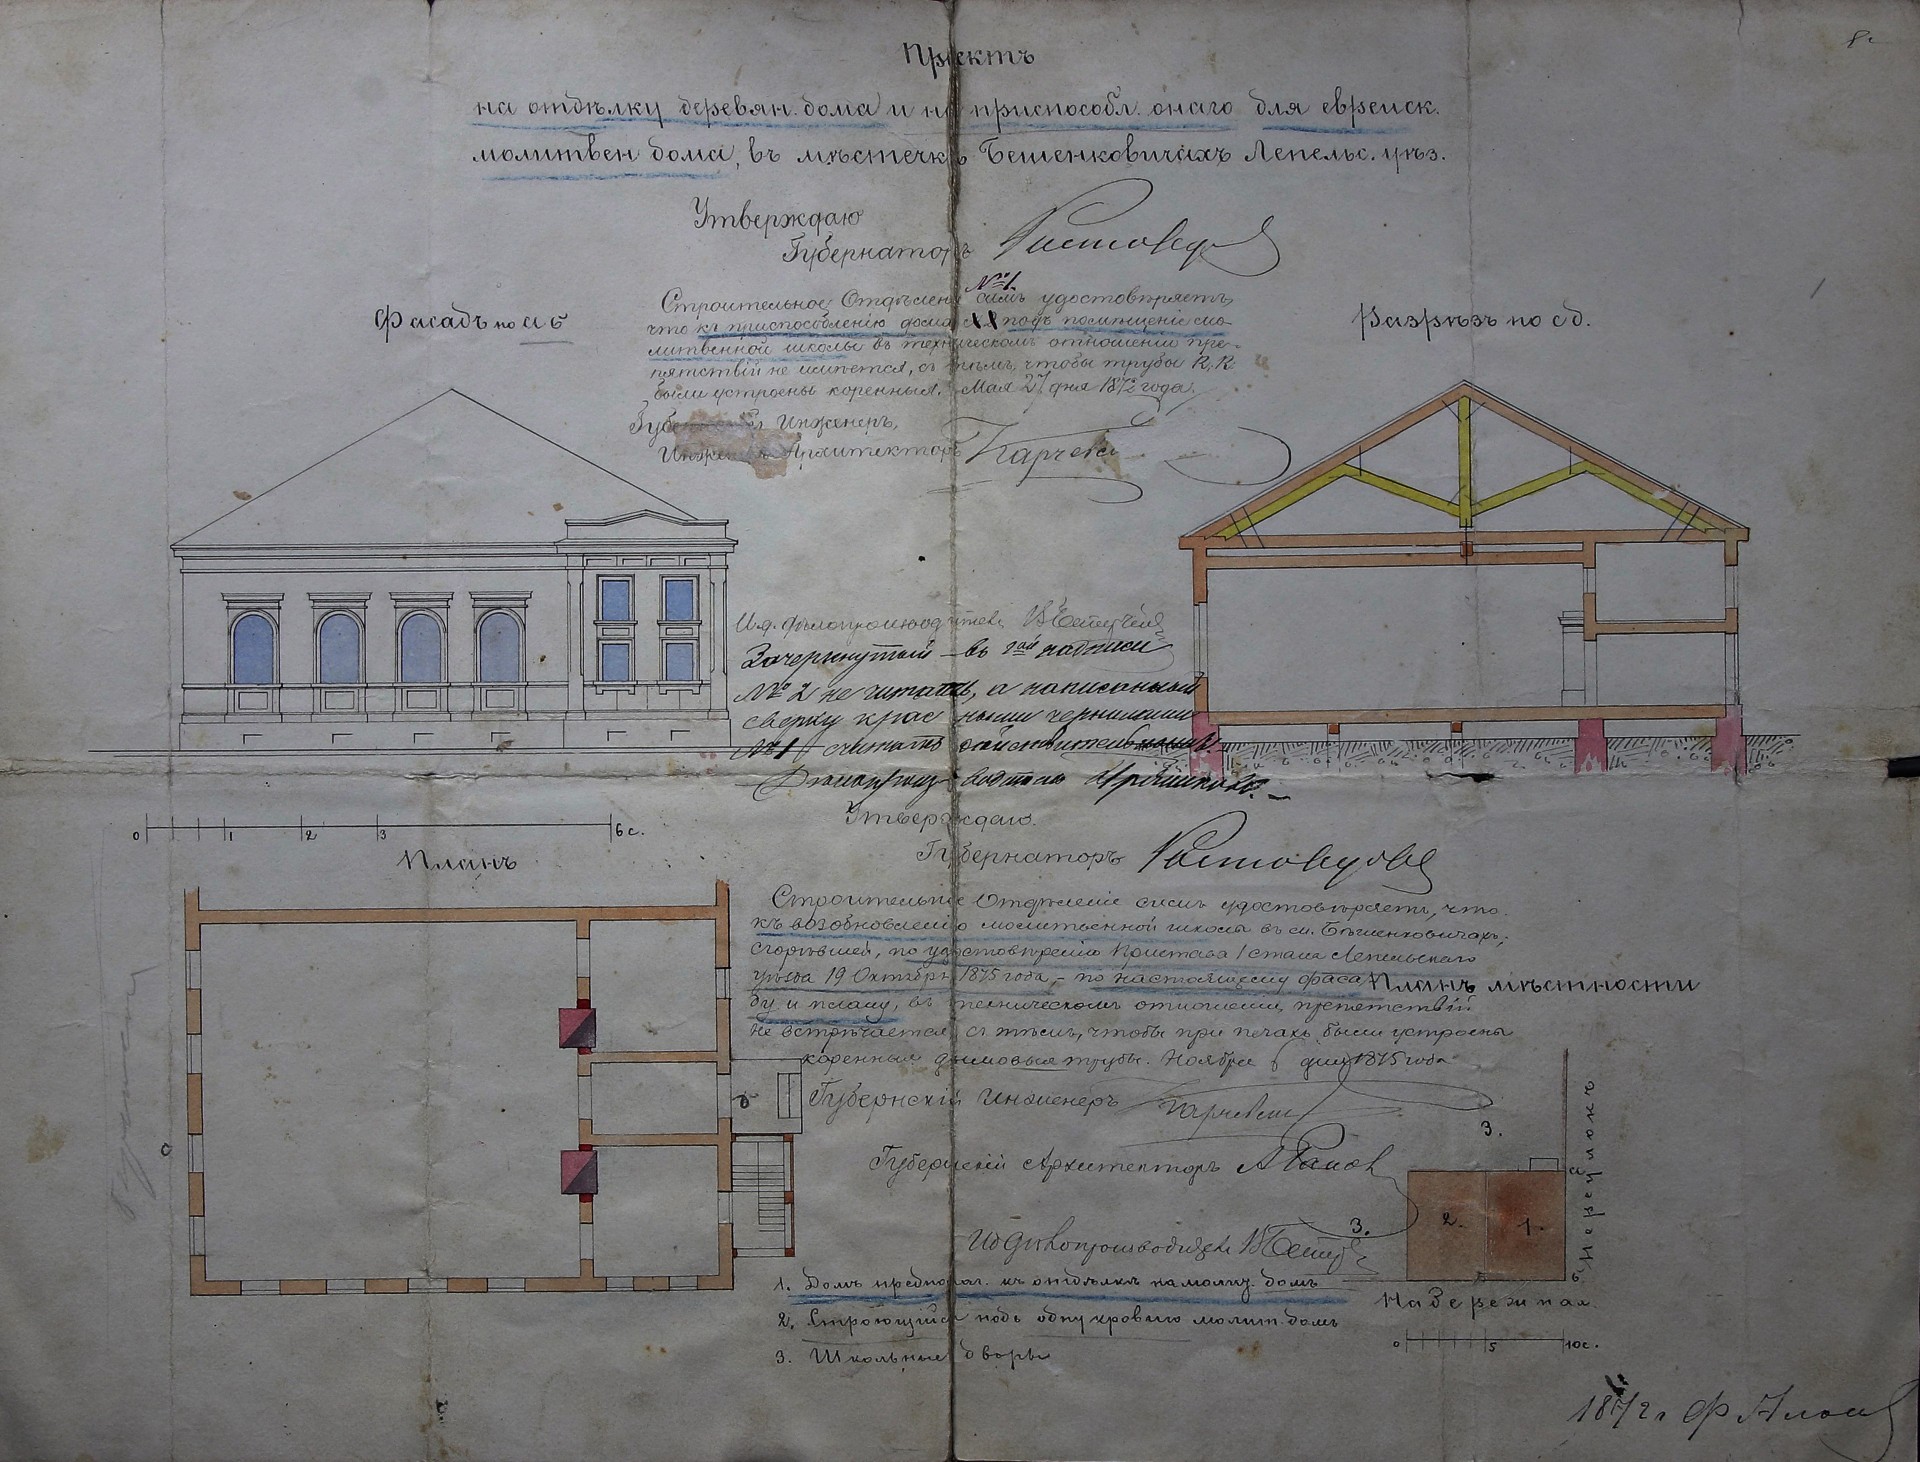 Проектъ
на отдѣлку деревян. дома и на приспособл. онаго для еврейск.
молитвен дома, въ мѣстечкѣ Бешенковичахъ Лепельс. уѣз.
Утверждаю
Губернаторъ Ростовцовъ
№ 1.
Строительное Отдѣленіе симъ удостовѣряетъ,
что къ приспособленію дома подъ помѣщеніе мо-
литвенной школы въ техническомъ отношеніи пре-
пятствій не имѣется, съ тѣмъ, чтобы трубы К, К
были устроены коренныя. Мая 27 дня 1872 года.
Инженеръ,
Архитекторъ
Фасадъ по а б
Разрѣзъ по с д.
Зачеркнутый въ надписи
№ 2 не читать, а написанный
сверху красными чернилами
№ 1 считать
0 1 2 3 6 с.
Планъ
Утверждаю.
Губернаторъ Ростовцовъ
Строительное Отдѣленіе симъ удостовѣряетъ, что
къ возобновленію молитвенной школы въ м. Бѣшенковичахъ,
сгорѣвшей, по удостовѣренію Пристава 1 стана Лепельскаго
уѣзда 19 Октября 1875 года, – по настоящему фаса
ду и плану, въ техническомъ отношеніи, препятствій
не встрѣчается, съ тѣмъ, чтобы при печахъ были устроены
коренныя дымовыя трубы. Ноября 6 дня 1875 года
Губернскій Инженеръ
Губернскій Архитекторъ
Планъ мѣстности
3.
3.
2. 1.
Переулокъ
Набережная.
0 5 10 с.
1. Домъ предполаг. къ отдѣлкѣ на молит. домъ
2. Строющійся подъ одну кровлю молит. домъ
3. Школьные дворы
1872 г